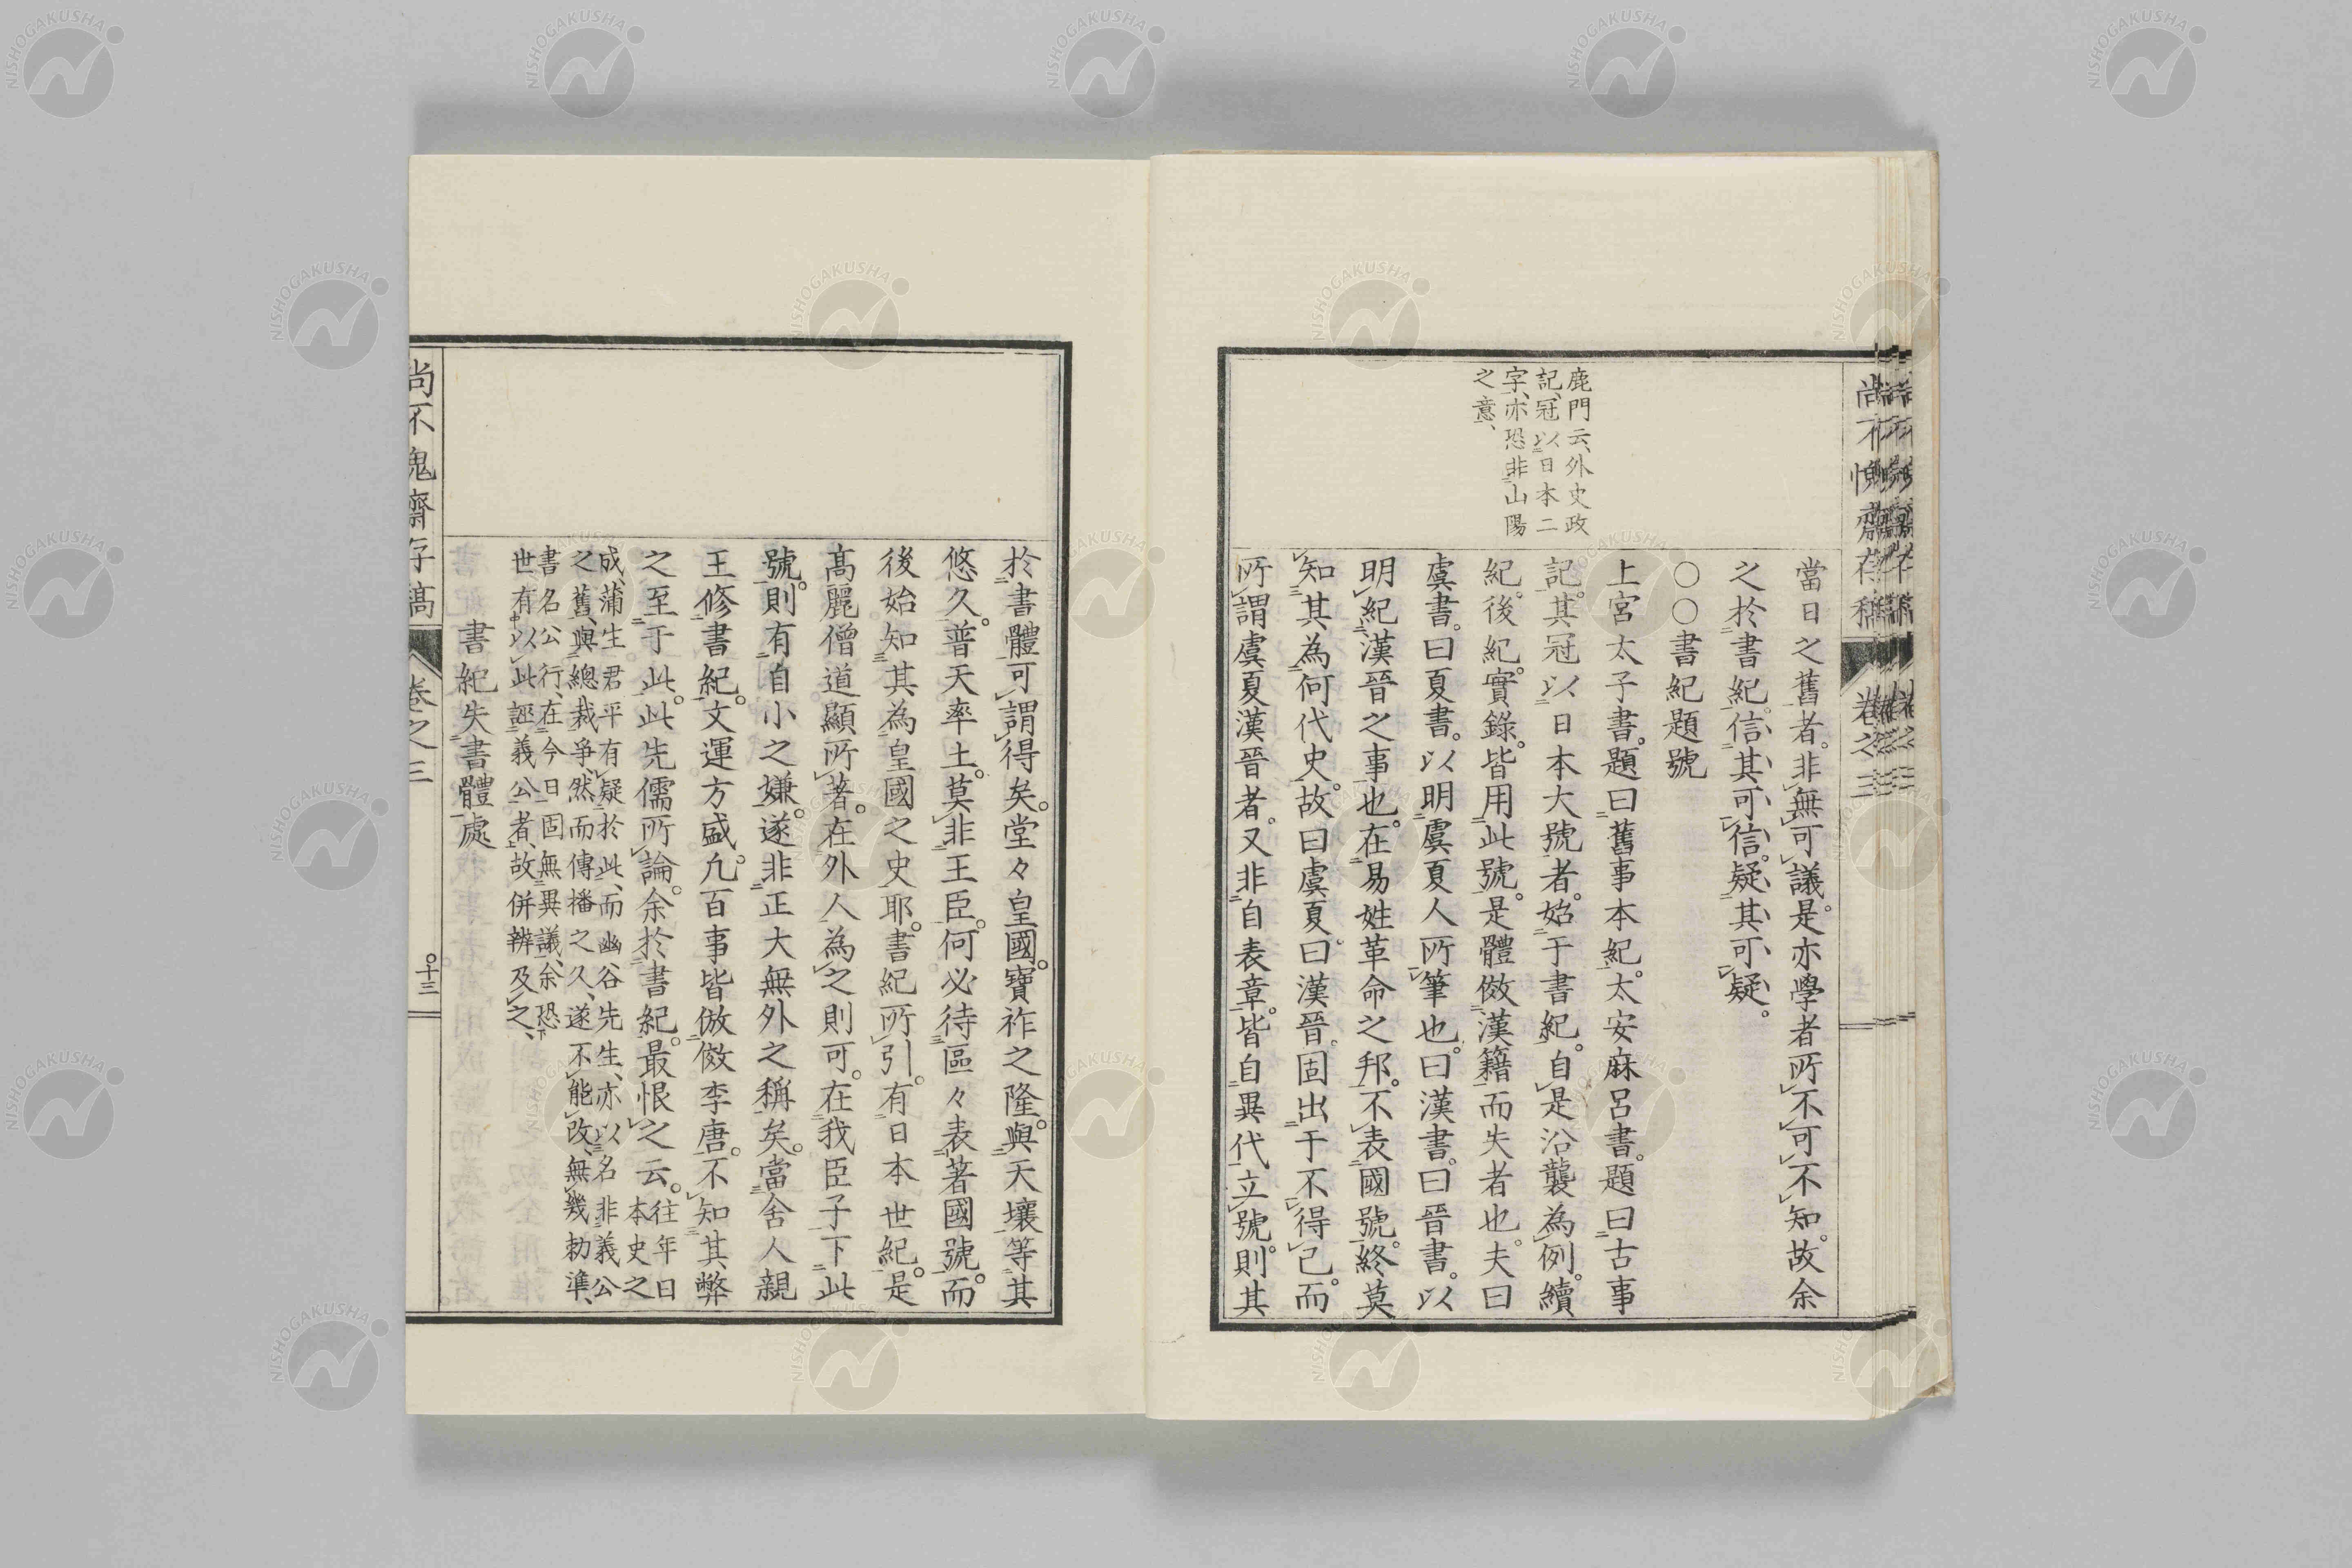 尚不愧齋存稿 卷之三
鹿門云、外史政
記、冠以日本二
字、亦恐非山陽
之意、
當日之舊者。非無可議。是亦學者所不可不知。故余
之於書紀。信其可信。疑其可疑。
〇〇書紀題號
上宮太子書。題曰舊事本紀。太安麻呂書。題曰古事
記。其冠以日本大號者。始于書紀。自是沿襲為例。續
紀。後紀。實錄。皆用此號。是體倣漢籍而失者也。夫曰
虞書。曰夏書。以明虞夏人所筆也。曰漢書。曰晉書。以
明紀漢晉之事也。在易姓革命之邦。不表國號。終莫
知其為何代史。故曰虞夏。曰漢晉。固出于不得已。而
所謂虞夏漢晉者。又非自表章。皆自異代立號。則其
於書體可謂得矣。堂々皇國。寶祚之隆。與天壤等其
悠久。普天率土。莫非王臣。何必待區々表著國號。而
後始知其為皇國之史耶。書紀所引。有日本世紀。是
高麗僧道顯所著。在外人為之則可。在我臣子下此
號。則有自小之嫌。遂非正大無外之稱矣。當舍人親
王修書紀。文運方盛。凢百事皆倣傚李唐。不知其弊
之至于此。此先儒所論。余於書紀。最恨之云。往年日
本史之
成、蒲生君平有疑於此、而幽谷先生、亦以名非義公
之舊、與總裁爭、然而傳播之久、遂不能改、無幾勅準、
書名公行、在今日固無異議、余恐
世有以此誣義公者、故併辨及之、
書紀失書體處
尚不愧齋存稿 卷之三 〇十三
NISHOGAKUSHA